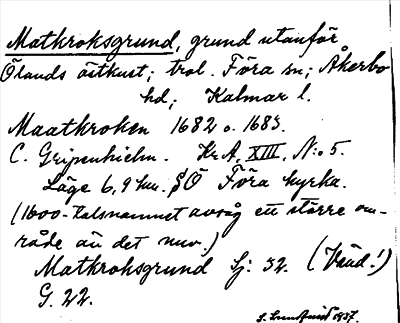 Matkroksgrund, grund utanför
Ölands östkust; trol. Föra sn; Åkerbo
hd; Kalmar l.
Maatkroken 1682 o. 1683.
C. Gripenhielm. Kr.A, XIII, N:o 5.
Läge 6,9 km. SÖ Föra kyrka.
(1600-talsnamnet avsåg ett större om-
råde än det nuv.)
Matkroksgrund Sj. 32. (Vind!)
G. 22.
S. Lundqvist 1937.